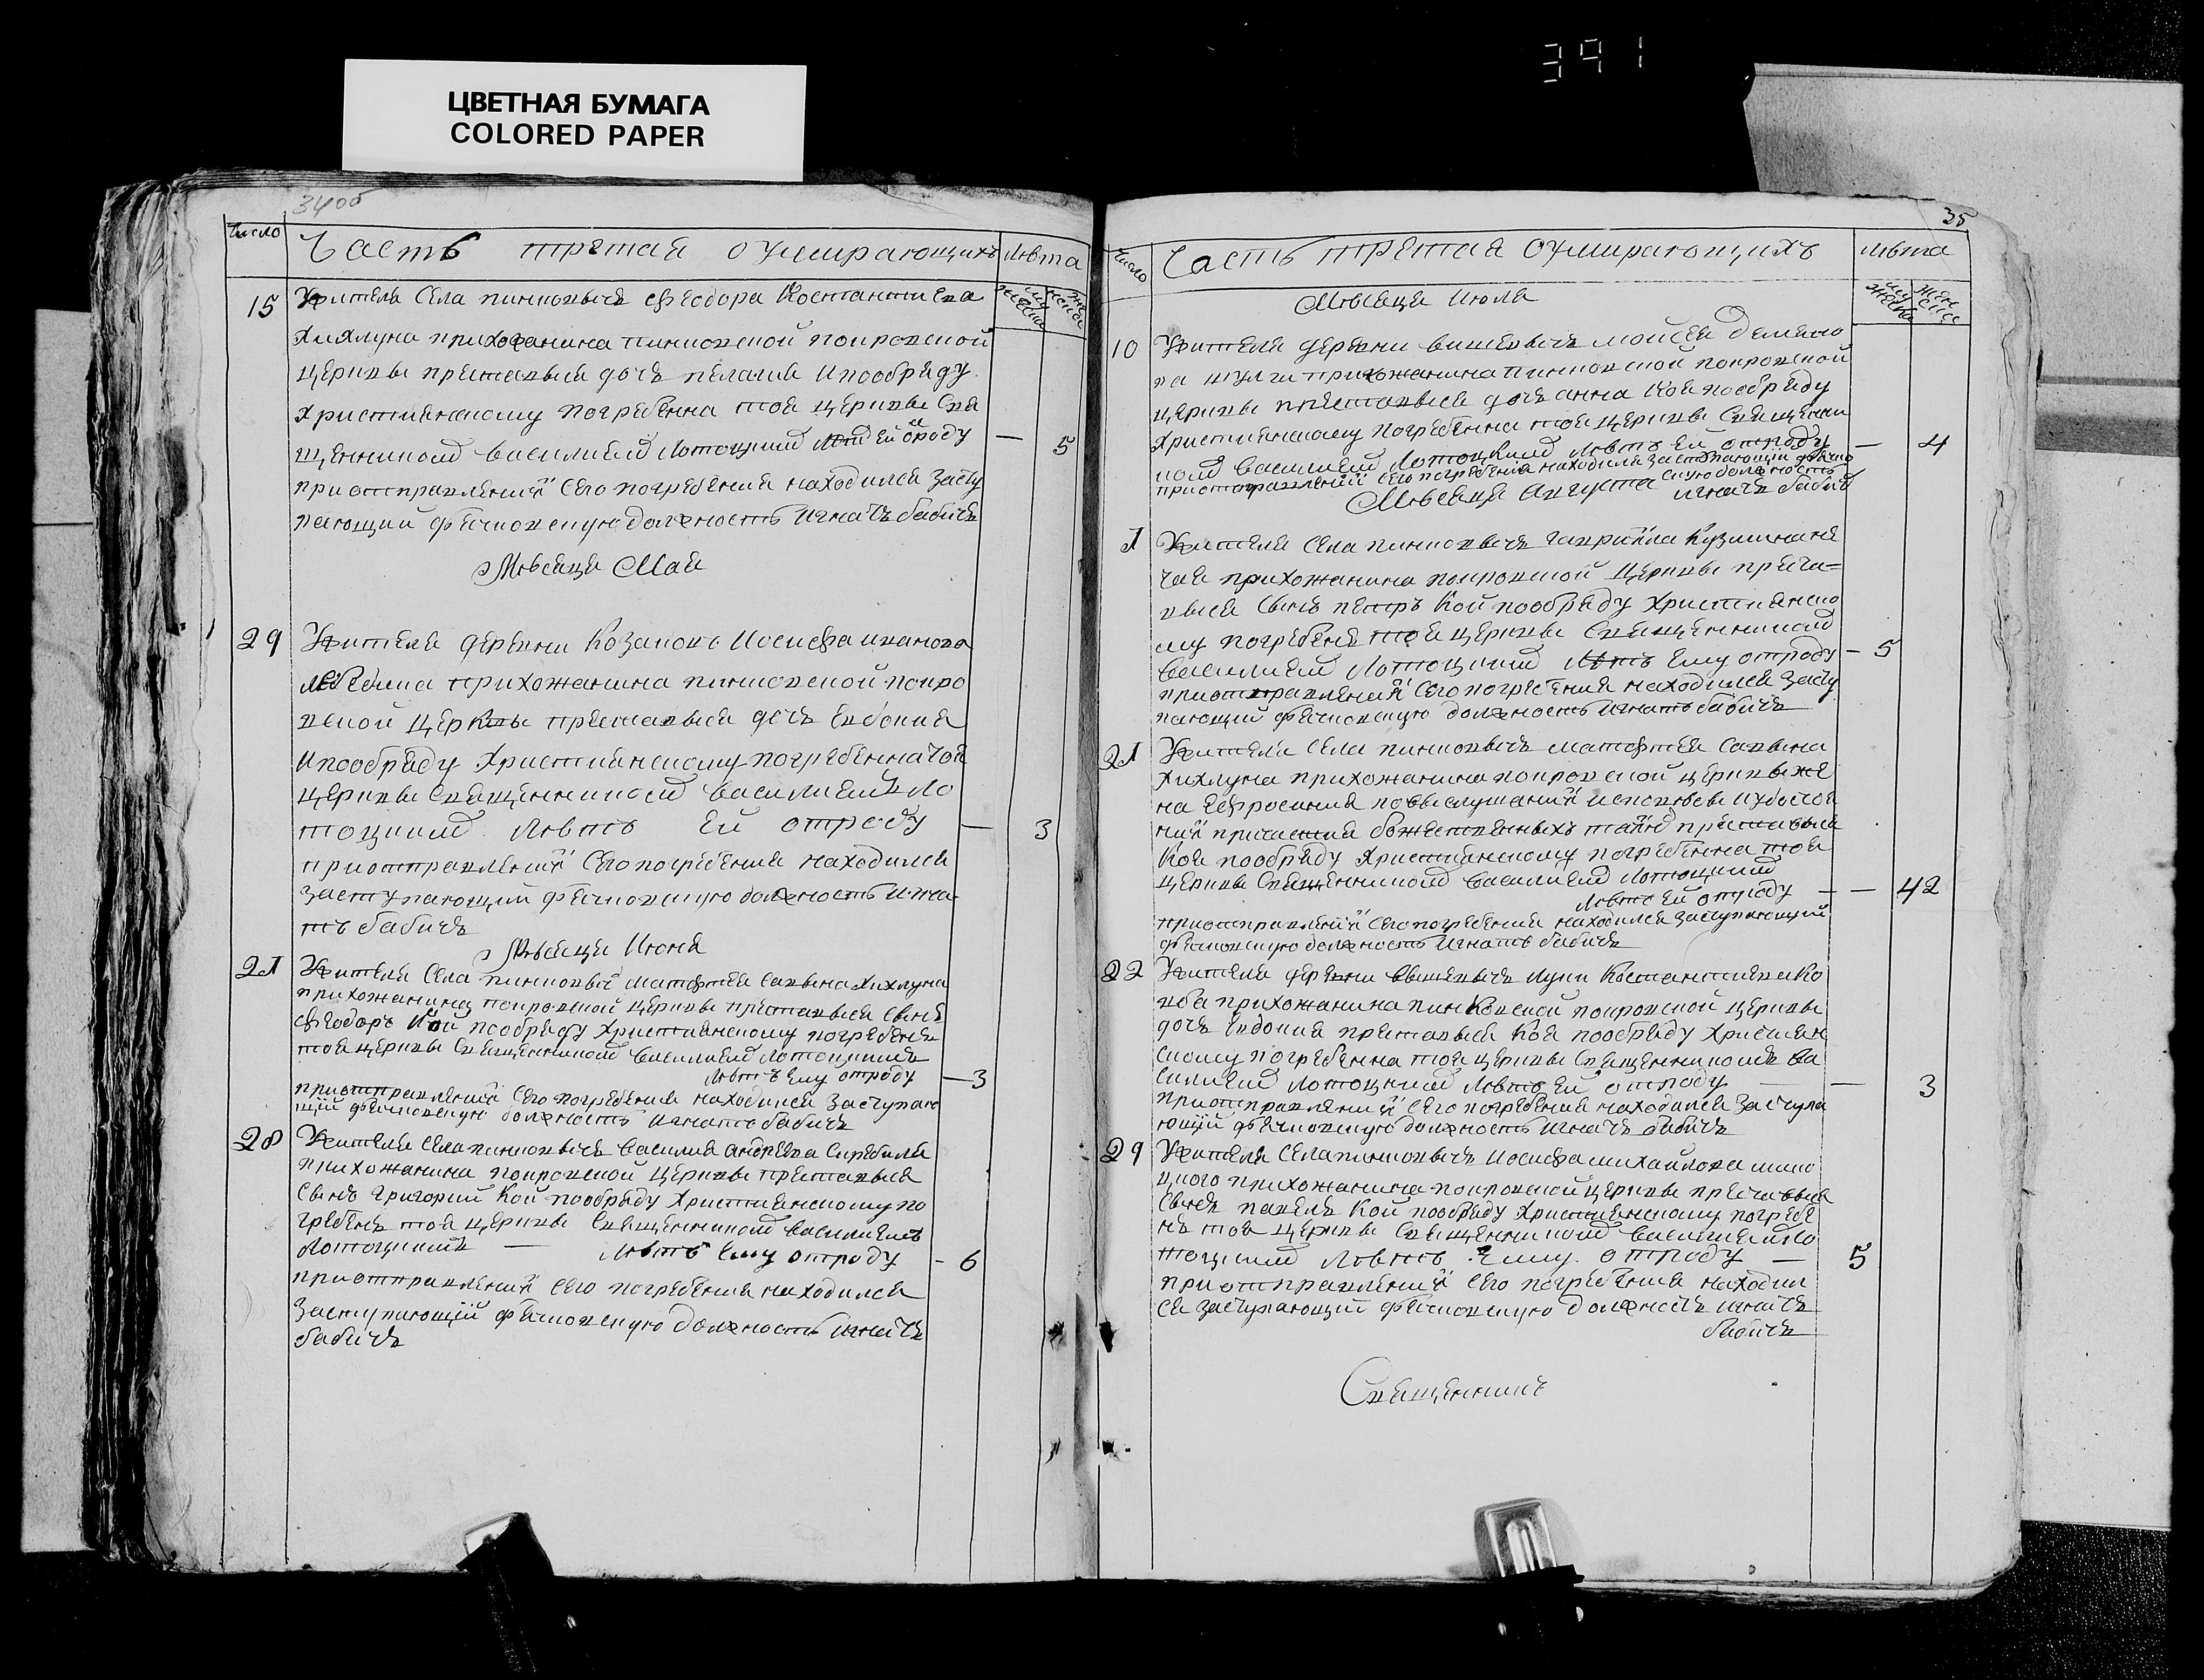 391
ЦВЕТНАЯ БУМАГА
COLORED PAPER
34об
Число Часть третая о умирающихъ Лѣта
мужеска женска
15 Жителя Села пинковичъ Феодора Костантиева
Хихлуча прихожанина пинковской покровской
церкви преставися дочъ пелагия и пообряду
Християнскому погребенна тоя церкви Свя
щенникомъ василиемъ Лотоцкимъ ей ѿроду — 5
приотправлений Сего погребения находился засту
пающий фѣичовскую должность Игнатъ бабичъ
Мѣсяца Мая
29 Жителя деревни Козликовъ Иосифа иванова
прихожанина пинковской покро
вской Церквы преставися дочъ Евдокия
И пообряду Християнскому погребенна тоя
церкви Священникомъ василиемъ Ло
тоцкимъ Лѣтъ ей отроду — 3
приотправлений Сего погребения находился
заступающий должность Игна
тъ бабичъ
Мѣсяца Июня
21 Жителя Села пинковичъ Матфтея Савына Хихлуча
прихожанина покровской церкви преставися Сынъ
Феодоръ Кой пообряду Християнскому погребенъ
тоя церкви Священникомъ василиемъ Лотоцкимъ
Лѣтъ ему отроду — 3
приотправлений Сего погребения находился заступаю
щий должность Игнатъ бабичъ
28 Жителя Села пинковичъ василия андрѣева
прихожанина покровской церкви преставися
Сынъ григорий Кой пообряду Християнскому по
гребенъ тоя церкви Священникомъ василиемъ
Лотоцкимъ — Лѣтъ ему отроду - 6
приотправлений Сего погребения находился
заступающий должность Игнатъ
бабичъ
35
Число Часть третая о умирающихъ лѣта
мужеска женска
Мѣсяца Июля
10 Жителя деревни вишевичъ мойсея Демано
ва прихожанина пинковской покровской
церкви преставися дочъ анна Коя пообряду
Християнскому погребенна тоя церкви Священни
комъ василиемъ Лотоцкимъ Лѣтъ ей отроду — 4
приотправлений Сего погребения находился заступающий
должность
Мѣсяца августа игнатъ бабичъ
1 Жителя Села пинковичъ гавриила Кузмина
прихожанина покровской Церкви преста=
вися Сынъ петръ Кой пообряду Християнско
му погребенъ тоя церкви Священникомъ
василиемъ Лотоцкимъ Лѣтъ ему отроду - 5
приотправлений Сего погребения находился засту
пающий должность игнатъ бабичъ
21 Жителя Села пинковичъ матфтея савына
Хихлуча прихожанина покровской церкви же
на Ефросиния повыслушаний исповѣды
причастия божественныхъ преставися
Коя пообряду Християнскому погребенна тоя
церкви Священникомъ василиемъ Лотоцкимъ
Лѣтъ ей отроду — — 42
приотправлений Сего погребения находился заступающий
должность игнатъ бабичъ
22 Жителя деревни вишевичъ луки Костантиева Ко
прихожанина пинковской покровской церкви
дочъ Евдокия преставися Коя пообряду Християн
скому погребенна тоя церкви Священникомъ ва
силиемъ Лотоцкимъ Лѣтъ ей отроду — 3
приотправлений Сего погребения находился заступа
ющий должность игнатъ бабичъ
29 Жителя Села пинковичъ Иосифа михайлова
прихожанина покровской церкви преставися
Сынъ павелъ Кой пообряду Християнскому погребе
нъ тоя церкви Священникомъ василиемъ Ло
тоцкимъ Лѣтъ ему отроду — 5
приотправлений Сего погребения находил
ся заступающий должность игнатъ
бабичъ
Священникъ